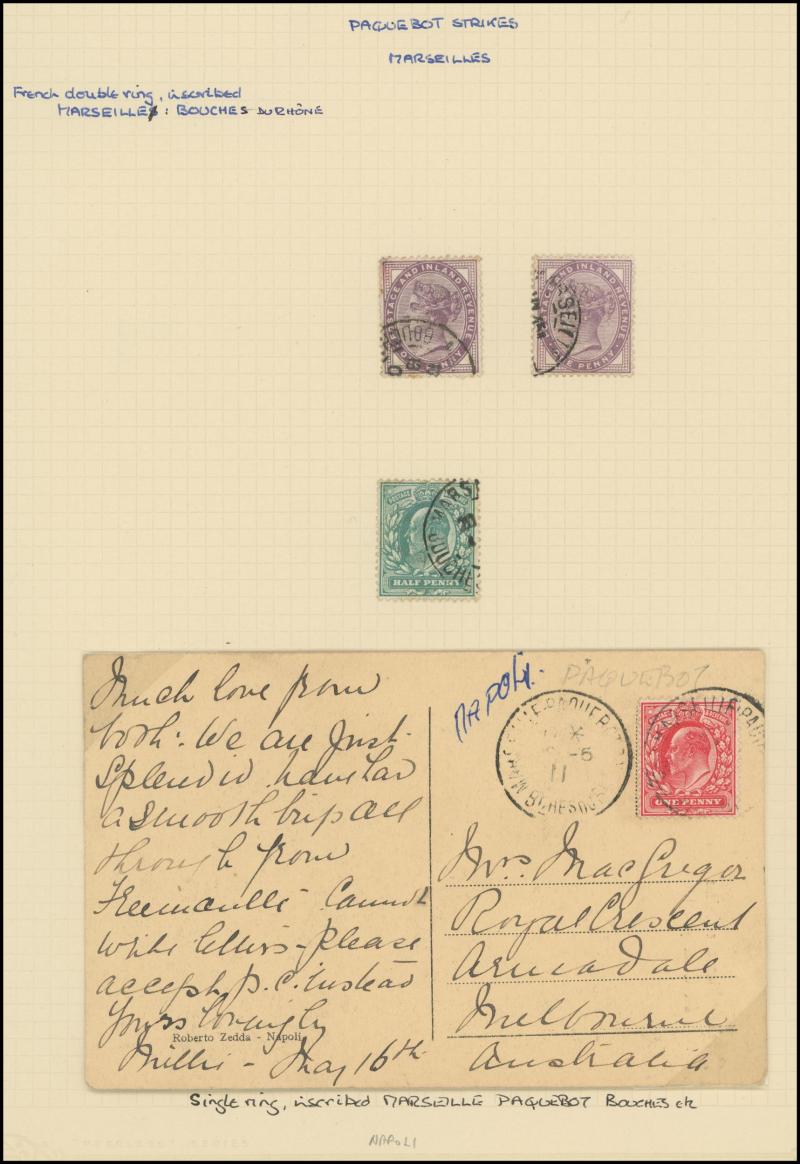 PAQUEBOT STRIKES
MARSEILLES
French double ring, inscribed
MARSEILLE: BOUCHES DU RHÔNE
POSTAGE AND INLAND REVENUE
ONE PENNY
AND INLAND REVENUE
ONE PENNY
POSTAGE
HALF PENNY
MARS
BOUCHES
NAPOLI.
PAQUEBOT
MARSEILLE-PAQUEBOT
-5
11
BCHES DU
MARSEILLE-PAQUE
ONE PENNY
Much love from
both: We are just
splendid have had
a smooth trip all
through from
Freemantle Cannot
write letters – please
accept p.c. instead
Yours lovingly
Millie – May 16th
Roberto Zedda - Napoli
Mrs. MacGregor
Royal Crescent
Armadale
Melbourne
Australia
Single ring, inscribed MARSEILLE PAQUEBOT BOUCHES etc
NAPOLI